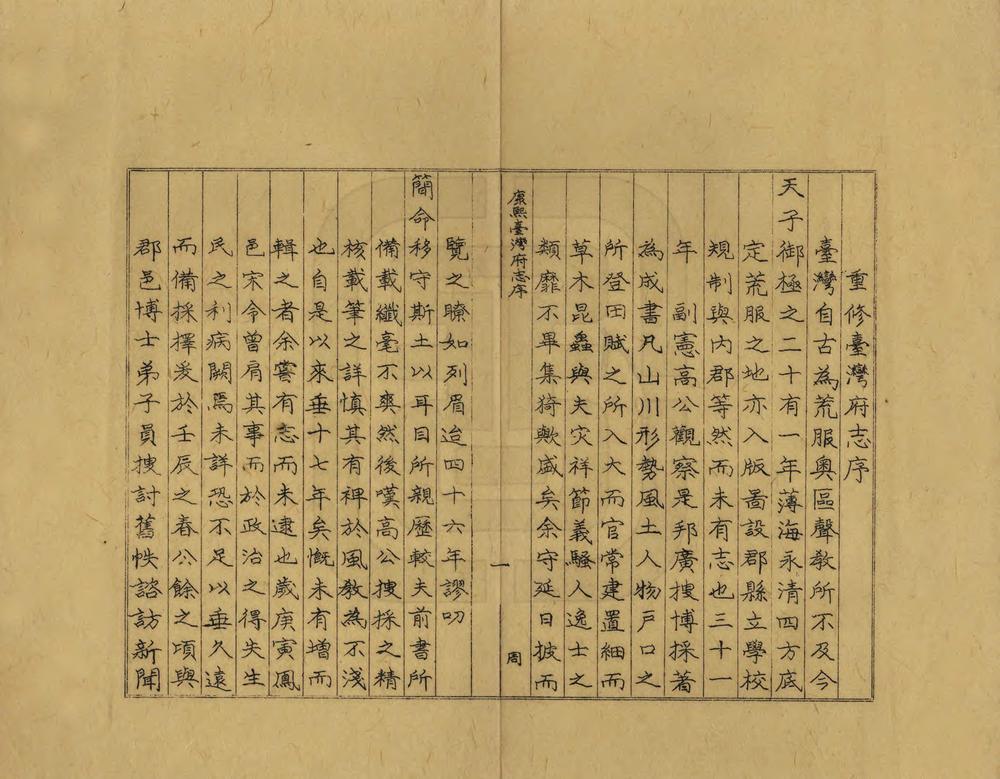 重修臺灣府志序
臺灣自古為荒服奧區聲教所不及今
天子御極之二十有一年薄海永清四方底
定荒服之地亦入版圖設郡縣立學校
規制與內郡等然而未有志也三十一
年 副憲高公觀察是邦廣搜博採著
為成書凡山川形勢風土人物戶口之
所登田賦之所入大而官常建置細而
草木昆蟲與夫灾祥節義騷人逸士之
類靡不畢集猗歟盛矣余守延日披而
康熙臺灣府志序
一
周
覽之瞭如列眉迨四十六年謬叨
簡命移守斯土以耳目所親歷較夫前書所
備載纖毫不爽然後嘆高公搜採之精
核載筆之詳慎其有裨於風教為不淺
也自是以來垂十七年矣慨未有增而
輯之者余嘗有志而未逮也歲庚寅鳳
邑宋令曾肩其事而於政治之得失生
民之利病闕焉未詳恐不足以垂久遠
而備採擇爰於壬辰之春公餘之頃與
郡邑博士弟子員搜討舊帙諮訪新聞